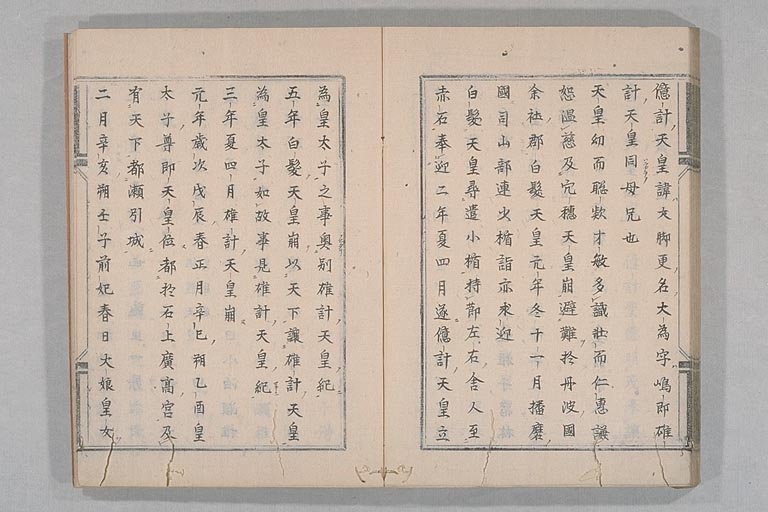 億計天皇諱大脚更名大為字嶋郎雄
計天皇同母兄也
天皇幼而聡欵才敏多識壮而仁恵謙
恕温慈及穴穂天皇崩避難於丹波國
余社郡白髪天皇元年冬十一月播磨
國司山部連小楯詣京求迎
白髪天皇尋遣小楯持節左右舎人至
赤石奉迎二年夏四月遂億計天皇立
為皇太子之事奥別雄計天皇紀
五年白髪天皇崩以天下讓雄計天皇
為皇太子如故事是雄計天皇紀
三年夏四月雄計天皇崩
元年歳次戊辰春正月辛巳朔乙酉皇
太子尊即天皇位都於石上廣高宮及
有天下都瀬引城
二月辛亥朔壬子前妃春日大娘皇女